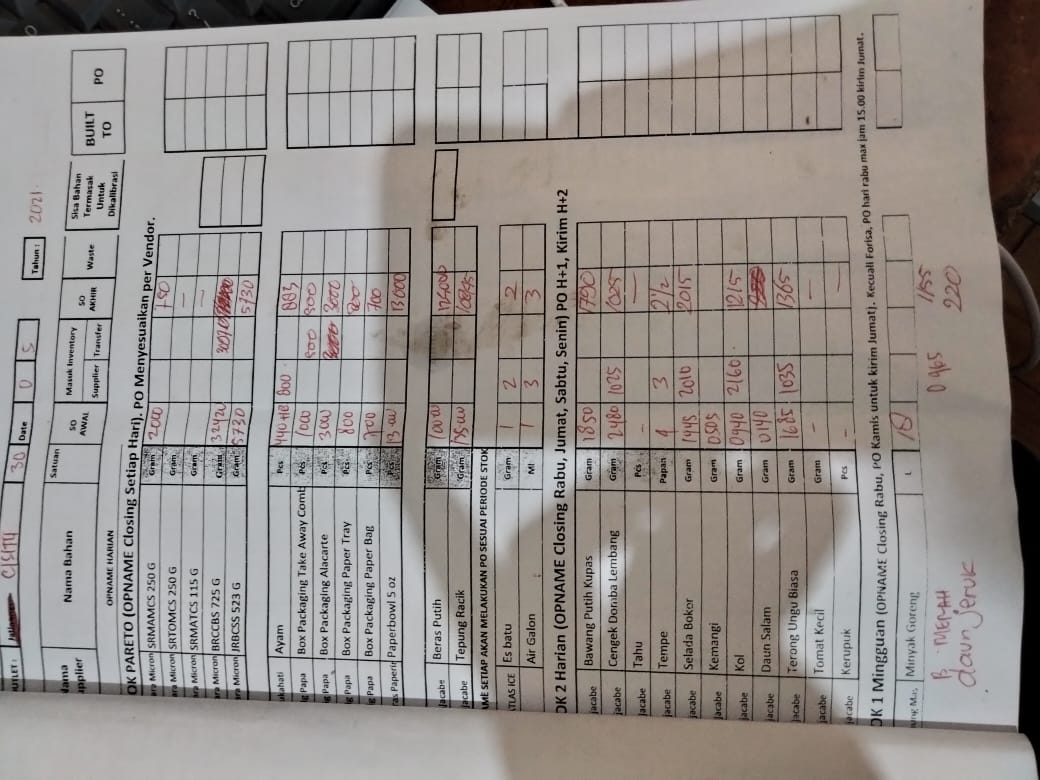 OUTLET : C/SITY 30 Date 0 5 Tahun : 2021
Nama Supplier Nama Bahan Satuan SO AWAL Masuk Inventory Supplier Transfer SO AKHIR Waste Sisa Bahan Termasak Untuk Dikalibrasi BUILT TO PO
OPNAME HARIAN
OK PARETO (OPNAME Closing Setiap Hari). PO Menyesuaikan per Vendor.
Micron SRMAMCS 250 G Gram 2000 150
Micron SRTOMCS 250 G Gram -
Micron SRMATCS 115 G Gram -
Micron BRCCBS 725 G Gram 32420
Micron JRBCSS 523 G Gram 5730 5730
Ayam Pcs 800 883
Box Packaging Take Away Comb Pcs 1000 800 800
g Papa Box Packaging Alacarte Pcs 3000
g Papa Box Packaging Paper Tray Pcs 800 800
g Papa Box Packaging Paper Bag Pcs 700 700
Paperbowl 5 oz Pcs 13000
jacabe Beras Putih Gram
jacabe Tepung Racik Gram
AME SETIAP AKAN MELAKUKAN PO SESUAI PERIODE STOK
ATLAS ICE Es batu Gram 1 2 2
Air Galon Ml 1 3 3
OK 2 Harian (OPNAME Closing Rabu, Jumat, Sabtu, Senin) PO H+1, Kirim H+2
jacabe Bawang Putih Kupas Gram 1850 1790
jacabe Cengek Domba Lembang Gram 2480 1025 1025
jacabe Tahu Pcs - -
jacabe Tempe Papan 4 3 2 1/2
jacabe Selada Boker Gram 1445 2010 2015
jacabe Kemangi Gram 0505
jacabe Kol Gram 0940 2160 1215
jacabe Daun Salam Gram 0140
jacabe Terong Ungu Biasa Gram 1685 1035 1365
jacabe Tomat Kecil Gram - -
jacabe Kerupuk Pcs - -
OK 1 Mingguan (OPNAME Closing Rabu, PO Kamis untuk kirim Jumat). Kecuali Forisa, PO hari rabu max jam 15.00 kirim Jumat.
Minyak Goreng L 18
B. MERAH 0965 155
daun jeruk 220